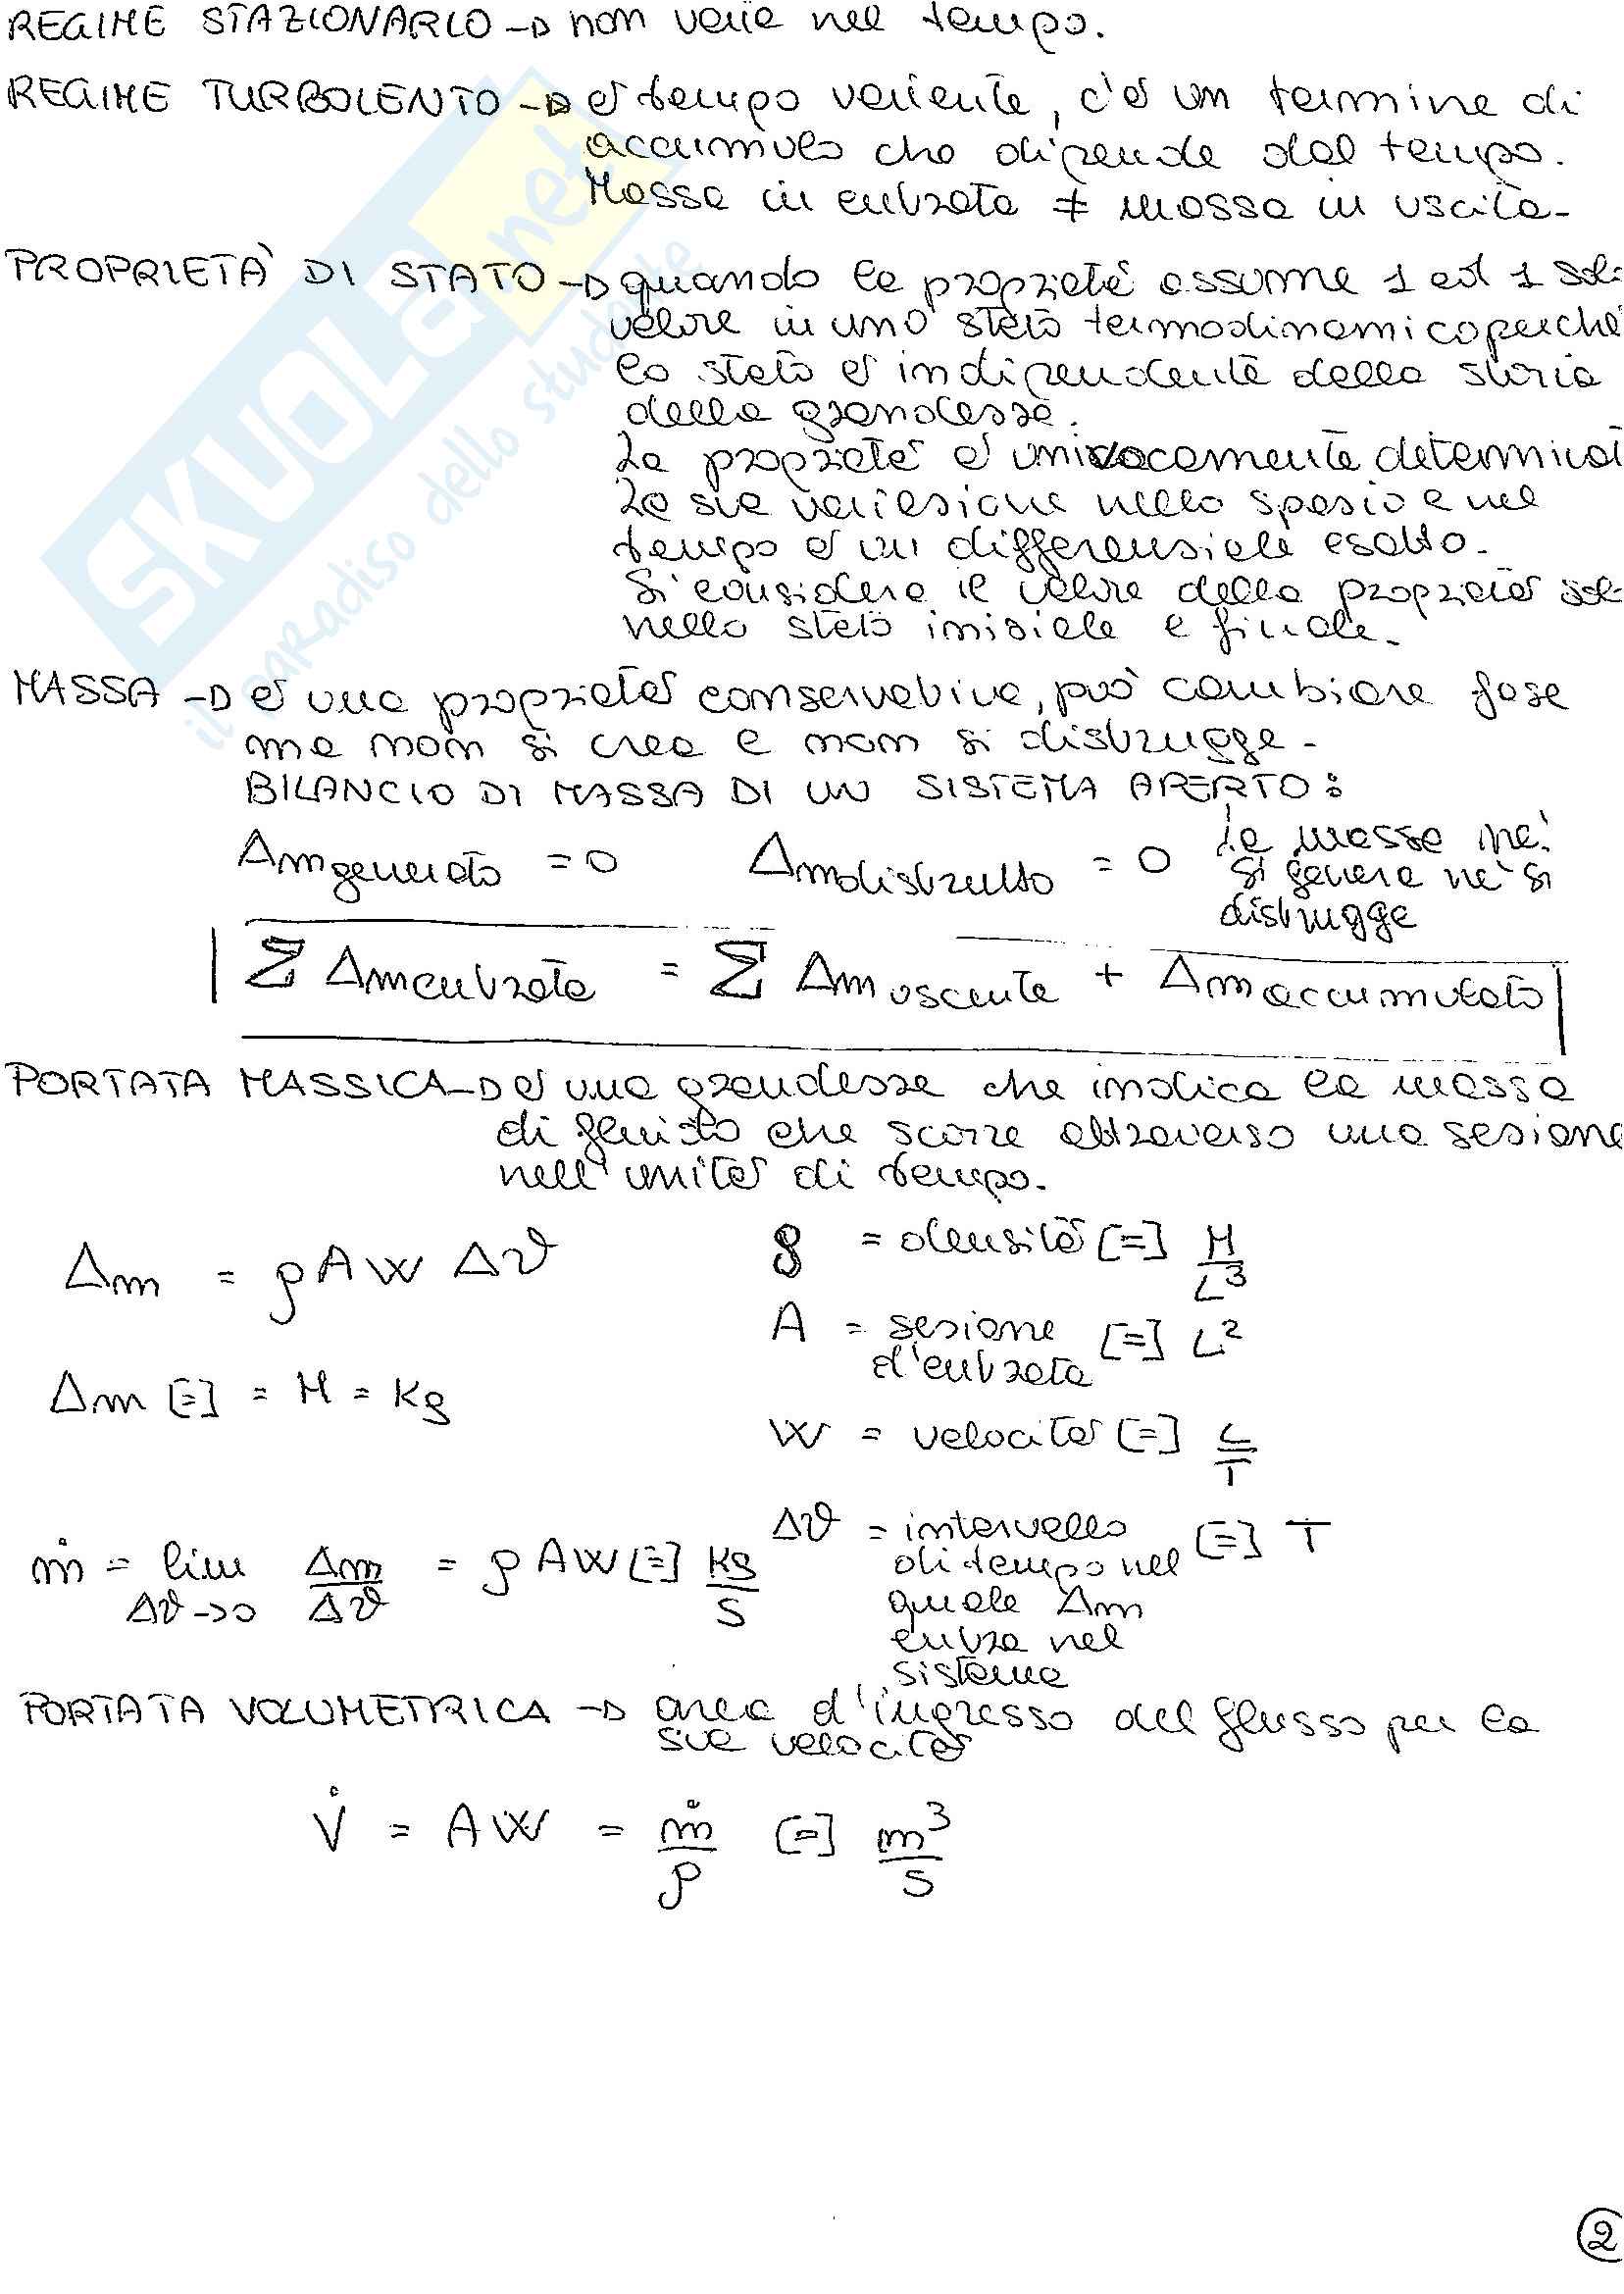 REGIME STAZIONARIO → non varia nel tempo.
REGIME TURBOLENTO → è tempo variante, c'è un termine di
accumulo che dipende dal tempo.
Massa in entrata ≠ massa in uscita.
PROPRIETÀ DI STATO → quando la proprietà assume 1 ed 1 sol
valore in uno stato termodinamico perché
lo stato è indipendente dalla storia
della grandezza.
La proprietà è univocamente determinat
La sua variazione nello spazio e nel
tempo è un differenziale esatto.
Si considera il valore della proprietà sol
nello stato iniziale e finale.
MASSA → è una proprietà conservativa, può cambiare fase
ma non si crea e non si distrugge.
BILANCIO DI MASSA DI UN SISTEMA APERTO:
Δm generato = 0 Δm distrutto = 0 La massa né
si genera né si
distrugge
Σ Δm entrata = Σ Δm uscente + Δm accumulato
PORTATA MASSICA → è una grandezza che indica la massa
di fluido che scorre attraverso una sezione
nell'unità di tempo.
Δm = ρ A w Δϑ
ρ = densità [=] M/L³
A = sezione d'entrata [=] L²
Δm [=] = M = Kg
w = velocità [=] L/T
Δϑ = intervallo
di tempo nel [=] T
quale Δm
entra nel
sistema
ṁ = lim Δϑ→0 Δm/Δϑ = ρ A w [=] Kg/s
PORTATA VOLUMETRICA → area d'ingresso del flusso per la
sua velocità
V̇ = A w = ṁ/ρ [=] m³/s
2
SKUOLA.net
il paradiso dello studente